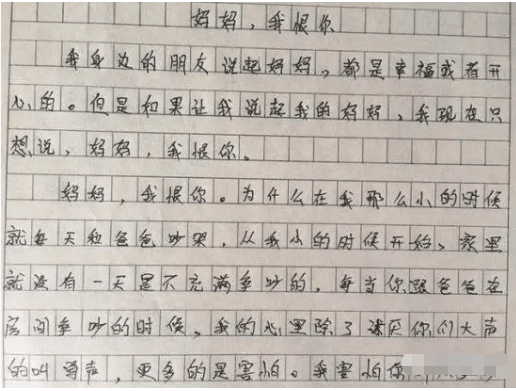 妈妈，我恨你
我身边的朋友说起妈妈，都是幸福或者开
心的。但是如果让我说起我的妈妈、我现在只
想说，妈妈，我恨你。
妈妈，我恨你。为什么在我那么小的时候
就每天和爸爸吵架，从我小的时候开始、家里
就没有一天是不充满争吵的，每当你跟爸爸在
房间争吵的时候，我的心里除了讨厌你们大声
的叫骂声，更多的是害怕。我害怕你